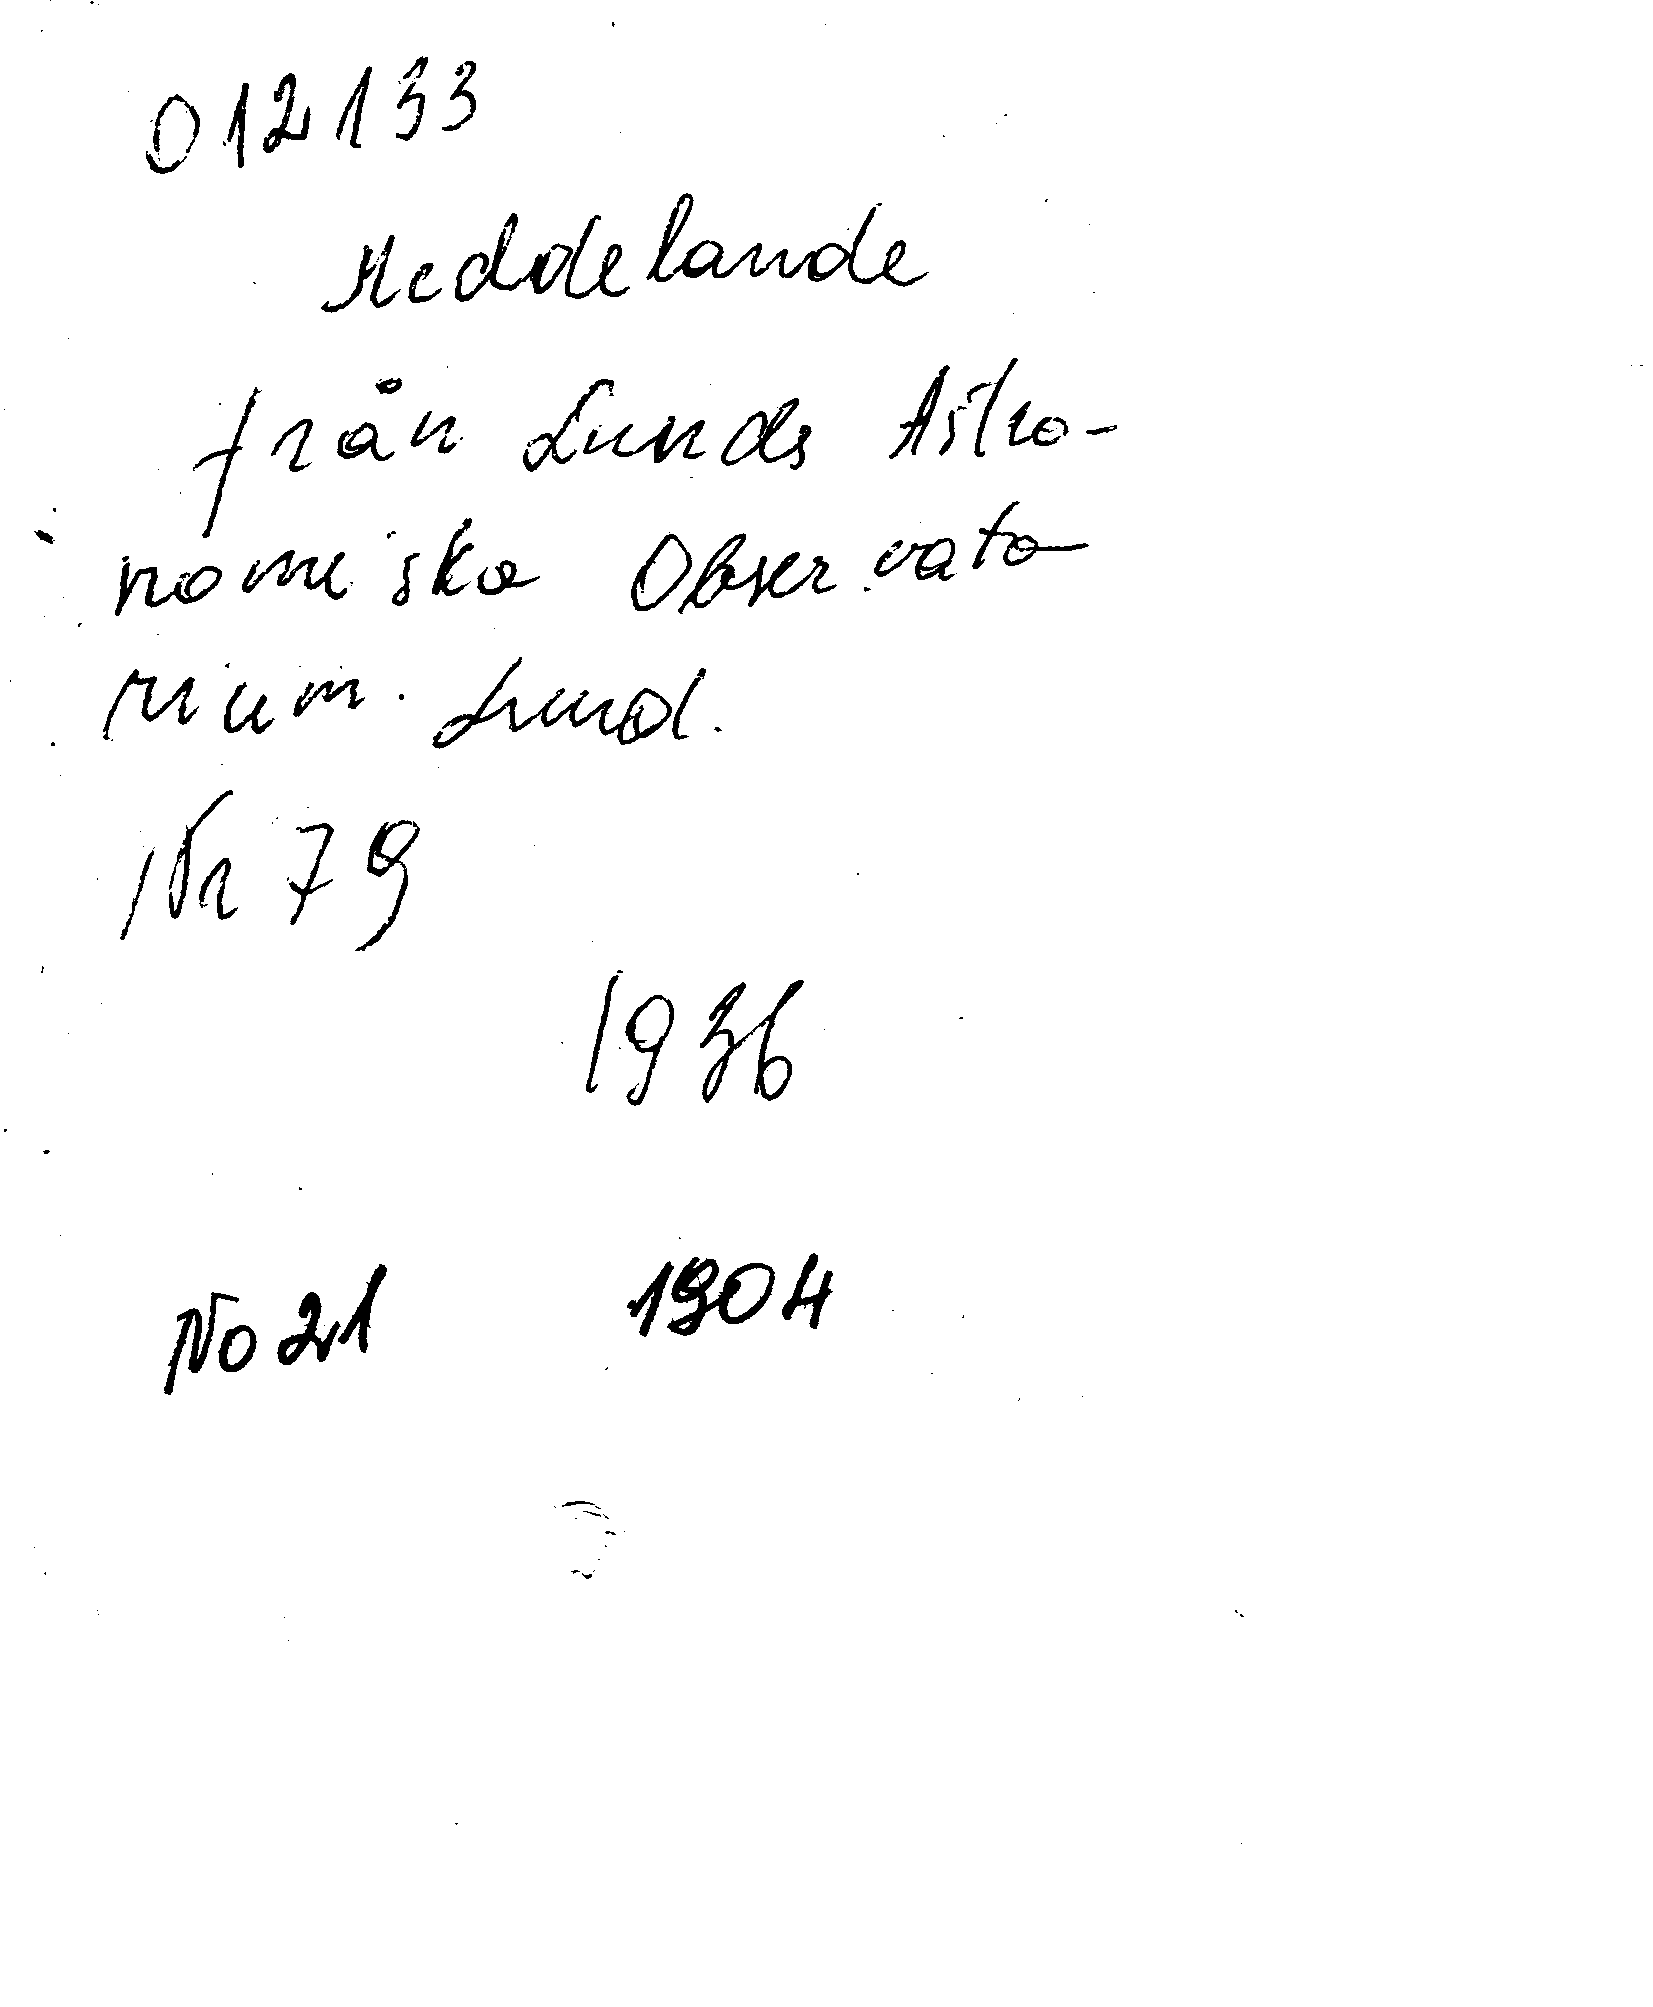 012133
Meddelande
från Lunds Astro-
nomiska Observato
rium. Lund.
Nr 79
1936
No 21 1904